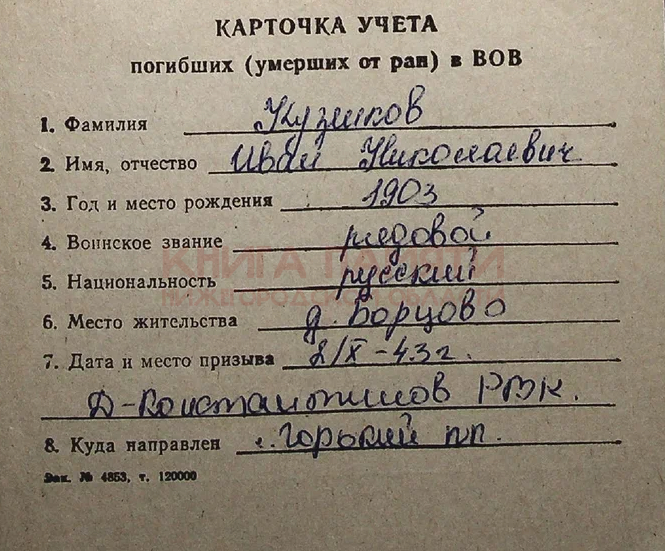 КАРТОЧКА УЧЕТА
погибших (умерших от ран) в ВОВ
1. Фамилия Кузнков
2. Имя, отчество Иван Николаевич
3. Год и место рождения 1903
4. Воинское звание рядовой
КНИГА ПАМЯТИ
5. Национальность русский
НИЖЕГОРОДСКОЙ ОБЛАСТИ
6. Место жительства д. Борцово
7. Дата и место призыва 8/X-43г.
Д-Константинов РВК.
8. Куда направлен г. Горький пп.
Зак. № 4853, т. 120000